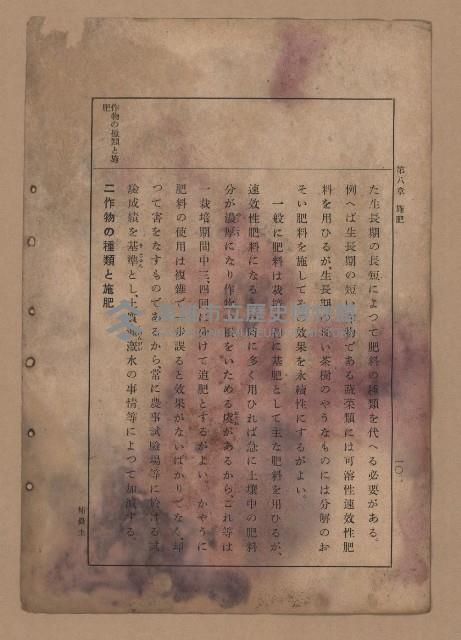 第八章 施肥
一〇
た生長期の長短によつて肥料の種類を代へる必要がある。
例へば生長期の短 作物である蔬菜類には可溶性速效性肥
料を用ひるが、生長期の い茶樹のやうなものには分解のお
そい肥料を施してその效果を永續性にするがよい。
一般に肥料は栽培 物に基肥として主な肥料を用ひるが、
速效性肥料になる 肉に多く用ひれば急に土壤中の肥料
分が濃厚になり作物 根をいためる虞があるから、これ等は
一栽培期間中三、四回 分けて追肥とするがよい。かやうに
肥料の使用は複雜で 步誤ると效果がないばかりでなく、却
つて害をなすものであるから、常に農事試驗場等に於ける試
驗成績を基準とし、土質 漑水の事情等によつて加減する。
二 作物の種類と施肥
作物の種類と施肥